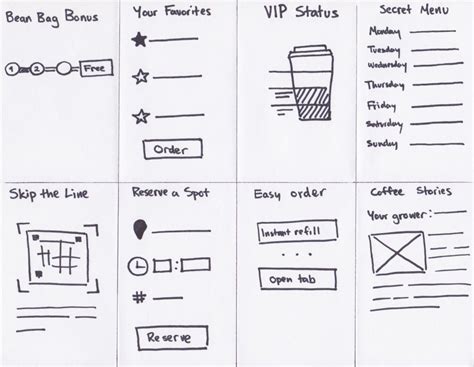 Bean Bag Bonus
1 2 Free
Your Favorites
Order
VIP Status
Secret Menu
Monday
Tuesday
Wednesday
Thursday
Friday
Saturday
Sunday
Skip the Line
Reserve a Spot
:
#
Reserve
Easy order
Instant refill
...
Open tab
Coffee Stories
Your grower: